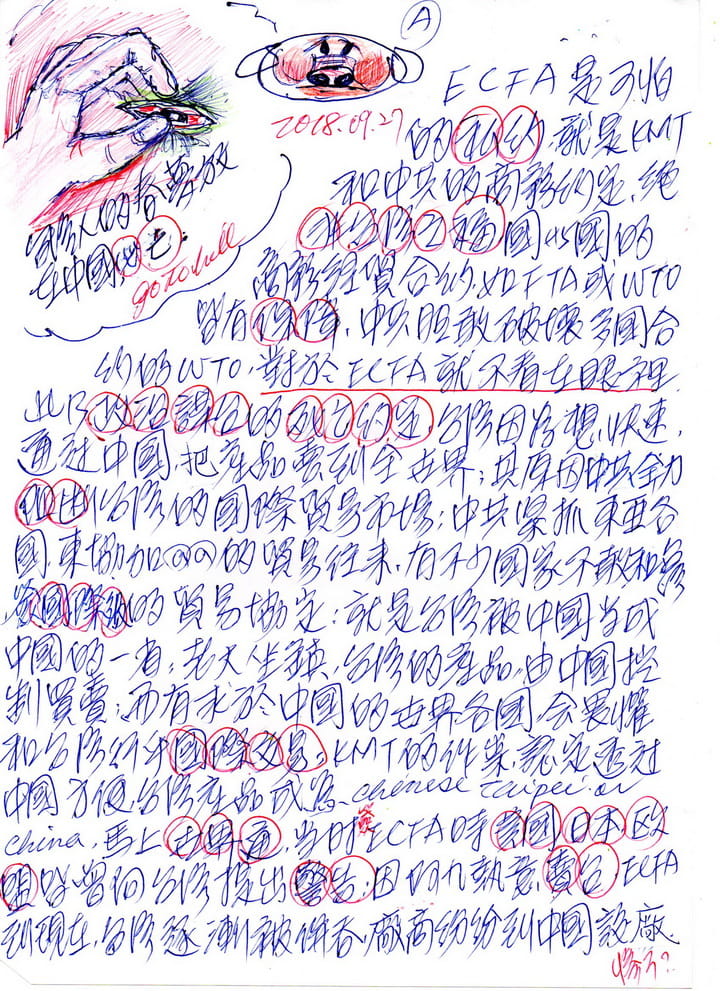 A
ECFA是可怕
2018.09.27
的私約,就是KMT
和中共的商務約定,絕
非台灣之福國與國的
商務經貿合約,如FTA或WTO
皆有保障,中共胆敢破壞多國合
約的WTO,對於ECFA就不看在眼裡
台灣人的
在中國
go to hell
此乃政治謀合的死亡約定,台灣因為想快速,
通过中國,把產品賣到全世界;其原因中共全力
台灣的國際貿易市場;中共緊抓東亞各
國,東協加@@的貿易往來,有不少國家不敢和台灣
簽國際級的貿易協定;就是台灣被中國当成
中國的一省,老大坐鎮,台灣的產品,由中國控
制買賣;而有求於中國的世界各國,会畏懼
和台灣行中國際交易,KMT的作業,認定透过
中國方便,台灣產品或為chinese taipei or
china,馬上世界通,当时簽ECFA時美國日本欧
盟皆曾向台灣提出警告;因阿九執意賣台ECFA
到現在,台灣逐漸被併吞,廠商紛紛到中國設廠.